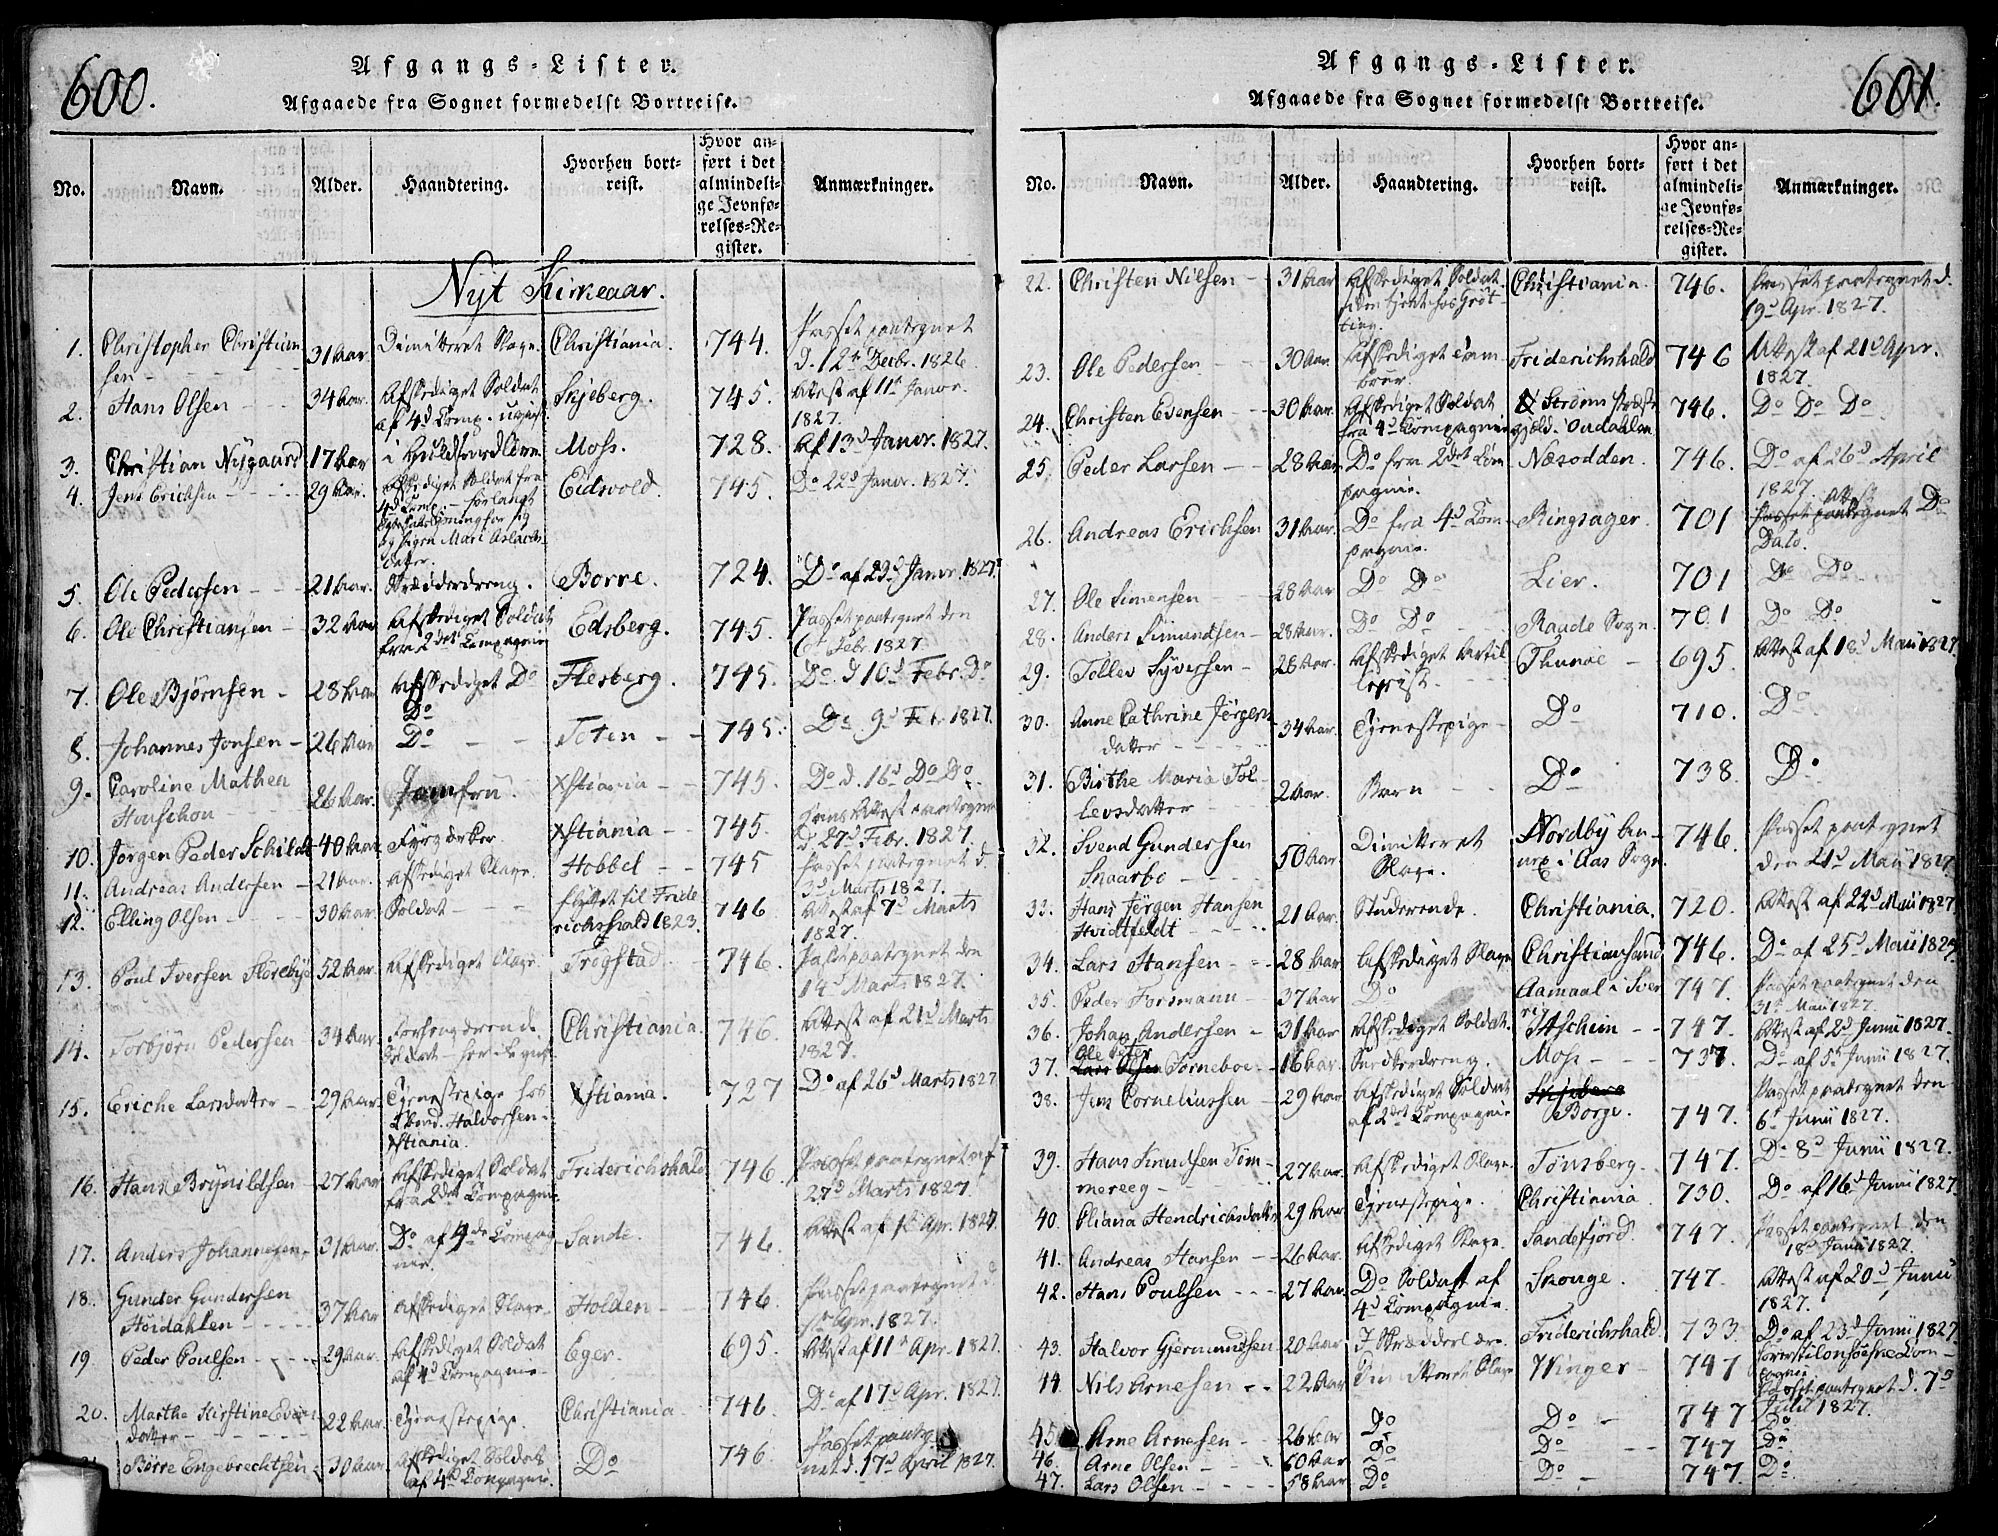 600.
Afgangs-Lister.
Afgaaede fra Sognet formedelst Bortreise.
No. Navn. Alder. Haandtering. Hvorhen bortreist. Hvor anført i det almindelige Jevnførelses-Register. Anmærkninger.
Nyt Kirkeaar.
1. Christopher Christiansen 31 Aar. Dimitteret Slave. Christiania. 744. Passet paategnet d. 12te Decbr. 1826.
2. Hans Olsen 34 Aar. Afskediget Soldat af 4d Comp. Skjeberg. 745. Attest af 11t Janvr. 1827.
3. Christian Nygaard 17 Aar i Moss. 728. Af 13d Janvr. 1827.
4. Jens Erichsen 29 Aar. Afskediget Soldat fra 4d Comp. - forlangt for sig og Mari Aslachsdatter. Eidsvold. 745. Do 22d Janvr. 1827.
5. Ole Pedersen 21 Aar. Skrædderdreng. Borre. 724. Do af 29d Janvr. 1827.
6. Ole Christiansen 32 Aar Afskediget Soldat fra 2det Compagnie Edsberg. 745. Passet paategnet den 6t Febr. 1827.
7. Ole Bjørnsen 28 Aar Afskediget Do Flesberg. 745. Do d 10d Febr. Do
8. Johannes Jonsen 26 Aar Do Do Toten 745. Do 9d Febr. 1827.
9. Caroline Mathea Houschou 26 Aar. Jomfru. Xstiania 745. Do d. 16d Do Do
10. Jørgen Peder Schildt 40 Aar Fyrværker Xstiania 745. Attest paategnet d 27d Febr. 1827.
11. Andreas Andersen 21 Aar. Afskediget Slave. Hobbel 745 Passet paategnet d. 3d Marts 1827.
12. Elling Olsen 30 Aar. Soldat flyttet til Friderichshald 1823. 746 Attest af 7d Marts 1827.
13. Poul Iversen 52 Aar. Afskediget Slave Trøgstad 746. Passet paategnet den 14d Marts 1827.
14. Torbjørn Pedersen 34 Aar Forhenværende Soldat Christiania. 746. Attest af 21d Marts 1827.
15. Eriche Larsdatter 29 Aar Tjenestepige hos Halvorsen Xstiania. Xstiania. 727 Do af 26d Marts 1827
16. Hans Brynildsen 27 Aar Afskediget Soldat fra 2det Compagnie. Friderichshald 746. Passet paategnet af 27d Marts 1827
17. Anders Johannesen 31 Aar. Do af 4de Compagnie. Sande. 746. Attest af 1t Apr. 1827.
18. Gunder Gundersen Høidahlen 37 Aar Afskediget Slave Holden 746. Passet paategnet d. Apr. 1827.
19 Peder Poulsen 29 Aar. Afskediget Soldat af 4d Compagnie Eger. 695. Attest af 11t Apr. 1827.
20. Marthe Kirstine datter 22 Aar. Tjenestepige. Christiania 746. Do af 17d Apr. 1827.
Børre Engebrechtsen 30 Aar. Afskediget Soldat af 4d Compagnie. Do 746. Passet paategnet d. 17d April 1827.
601.
Afgangs-Lister.
Afgaaede fra Sognet formedelst Bortreise.
No. Navn. Alder. Haandtering. Hvorhen bortreist. Hvor anført i det almindelige Jevnførelses-Register. Anmærkninger.
22. Christen Nilsen 31 Aar Afskediget Soldat. tjent hos Christiania. 746. Passet paategnet d. 19d Apr. 1827.
23. Ole Pedersen 30 Aar. Afskediget Tambour. Friderichshald 746 Attest af 21d Apr. 1827.
24. Christen Evensen 30 Aar. Afskediget Soldat fra 4d Compagnie Strøms Præstegjæld i Oudahlen 746. Do Do Do
25. Peder Larsen 28 Aar Do fra 2det Compagnie. Næsodden. 746. Do af 26d April 1827.
26. Andreas Erichsen 31 Aar. Do fra 4d Compagnie. Ringsager. 701 Attest Passet paategnet Do Dato.
27. Ole Simensen 28 Aar Do Do Lier. 701 Do Do
28. Anders Simundsen 28 Aar. Do Do Raade Sogn. 701 Do Do
29. Tollev Syversen 28 Aar. Afskediget Artillerist. Thunøe 695. Attest af 18d Maii 1827.
30. Anne Cathrine Jørgensdatter 34 Aar. Tjenestepige Do 710. Do
31. Birthe Maria Tollevsdatter 2 Aar. Barn Do 738. Do
32. Svend Gundersen Skaarbo 50 Aar Dimitteret Slave. Nordby Annex i Aas Sogn. 746. Passet paategnet den 21d Maii 1827.
33. Hans Jørgen Hansen Hvidtfeldt 21 Aar. Studerende. Christiania. 720. Attest af 22d Maii 1827
34. Lars Hansen 28 Aar Afskediget Slave Christiansand 746. Do af 25d Maii 1827.
35. Peder Forsmann 37 Aar Do Aamaal i Sverrig 747. Passet paategnet den 31te Maii 1827.
36. Johan Andersen 31 Aar Afskediget Soldat. Aschim 747. Attest af 2d Junii 1827.
37. Ole Peter Torneboe 16 Aar. Snedkerdreng. Moss 737. Do af 5t Junii 1827.
38. Jens Corneliussen 29 Aar Afskediget Soldat af 2det Compagnie Skjeberg Borge. 747. Passet paategnet den 6t Junii 1827.
39. Hans Knudsen Tommereeg 27 Aar. Afskediget Slave. Tønsberg. 747. Do 8d Junii 1827.
40. Eliana Hendrichsdatter 29 Aar Tjenestepige. Christiania 730. Do af 16d Junii 1827.
41. Andreas Hansen 26 Aar. Afskediget Slave. Sandefjord. 747. Passet paategnet den 18d Junii 1827.
42. Hans Poulsen 27 Aar Do Soldat af 4d Compagnie. Skouge. 747. Attest af 20d Junii 1827.
43. Halvor Gjermundsen 20 Aar I Skrædderlære. Friderichshald 733. Do af 23d Junii 1827
44 Nils Arnesen 22 Aar Dimitteret Slave Winger 747 Passet paategnet d. 7d Julii 1827.
45 Arne Arnesen 26 Aar Do Do 747 Do
46. Arne Olsen 60 Aar Do Do 747 Do
47. Lars Olsen 58 Aar Do Do 747. Do